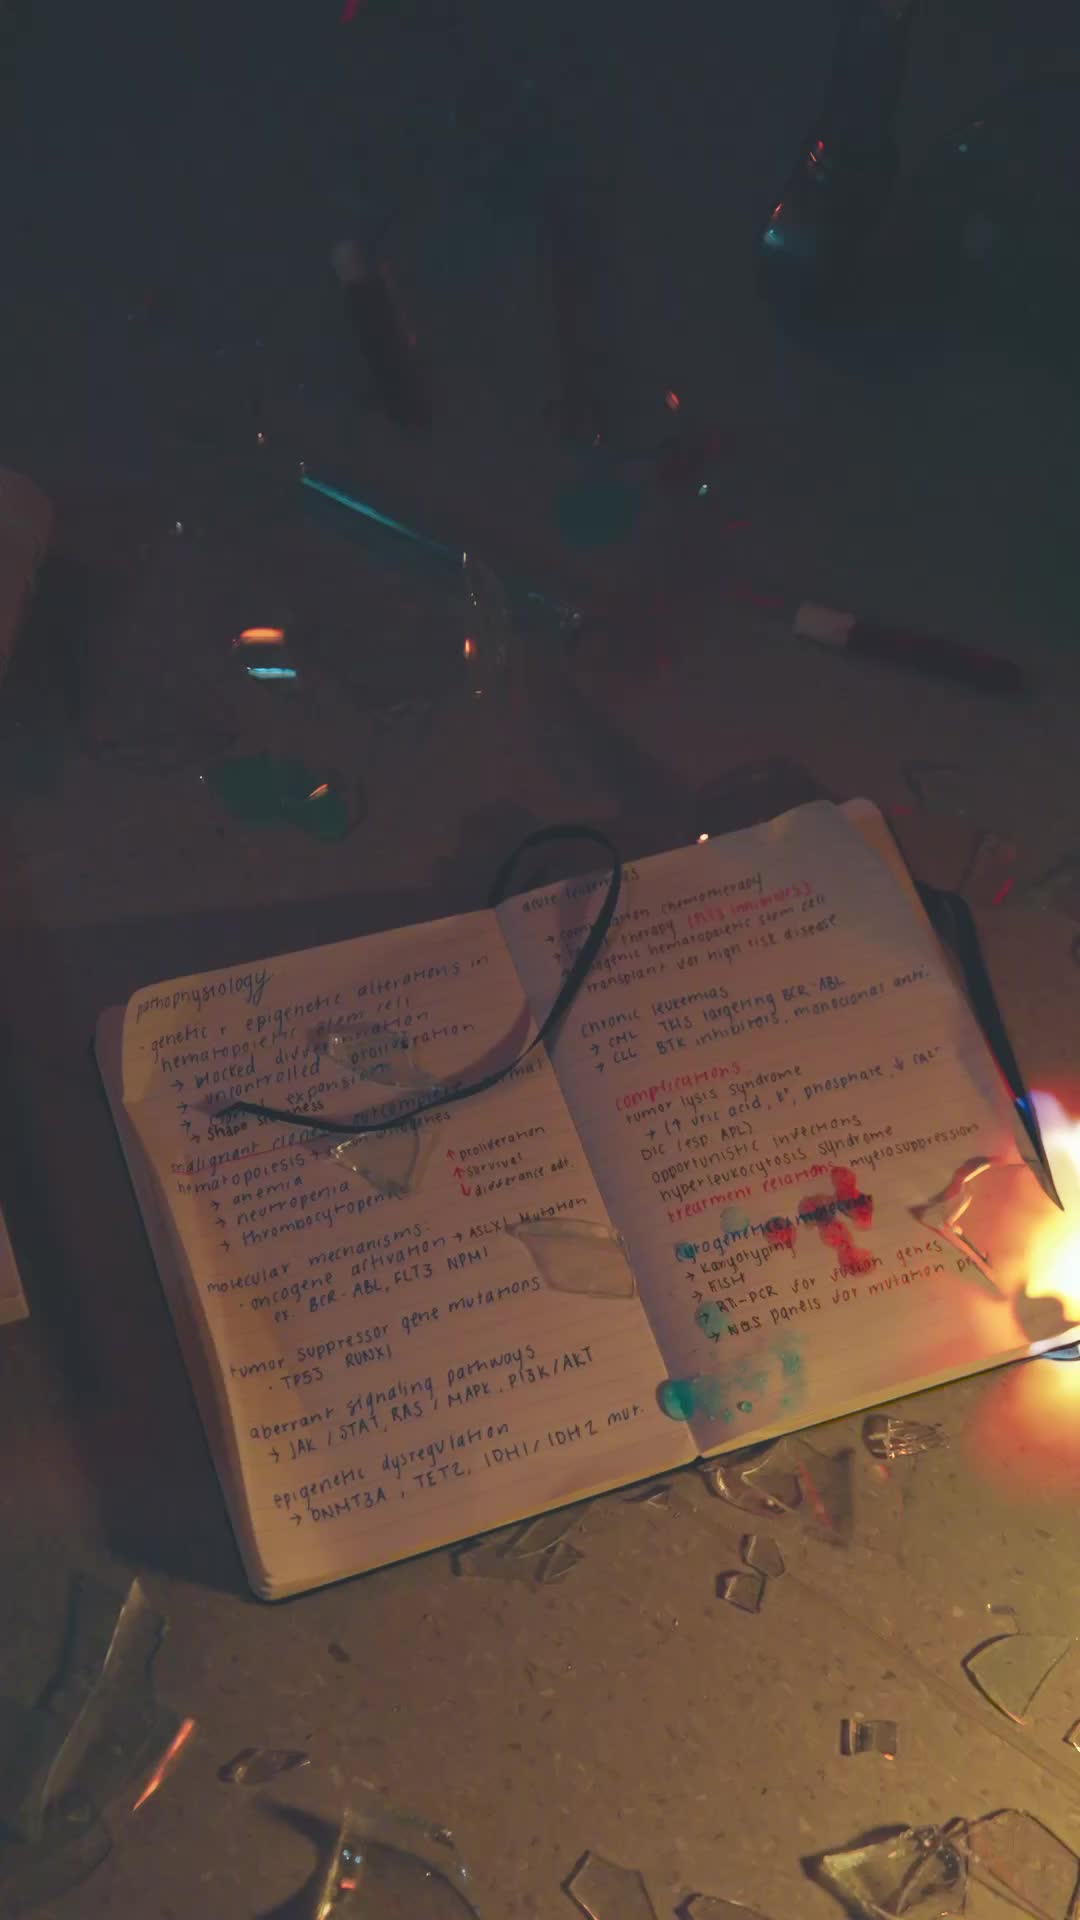 pathophysiology
· genetic + epigenetic alterations in
hematopoietic stem cell
→ blocked differentiation
→ uncontrolled proliferation
→ clonal expansion
→ shape
malignant clones outcompete normal
hematopoiesis →
→ anemia
→ neutropenia
→ thrombocytopenia
↑ proliferation
↑ survival
↓
molecular mechanisms:
· oncogene activation → ASLX1 Mutation
ex. BCR-ABL, FLT3 NPM1
tumor suppressor gene mutations
· TP53 RUNX1
aberrant signaling pathways
→ JAK / STAT, RAS / MAPK, PI3K/AKT
epigenetic dysregulation
→ DNMT3A, TET2, IDH1/IDH2 mut.
acute leukemias
→ chemotherapy
→ therapy (FLT3 inhibitors)
hematopoietic stem cell
transplant for high risk disease
chronic leukemias
→ CML TKIs targeting BCR-ABL
→ CLL BTK inhibitors, monoclonal anti.
complications
tumor lysis syndrome
→ (↑ uric acid, K⁺, phosphate, ↓ Ca²⁺
DIC (esp. APL)
opportunistic infections
hyperleukocytosis syndrome
treatment relations myelosuppression
cytogenetics +
→ Karyotyping
→ FISH
→ RT-PCR for fusion genes
→ NGS panels for mutation